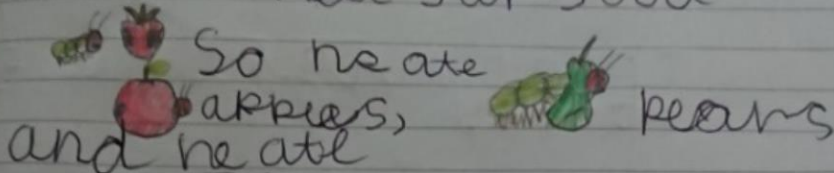 So he ate
apples, pears
and he ate